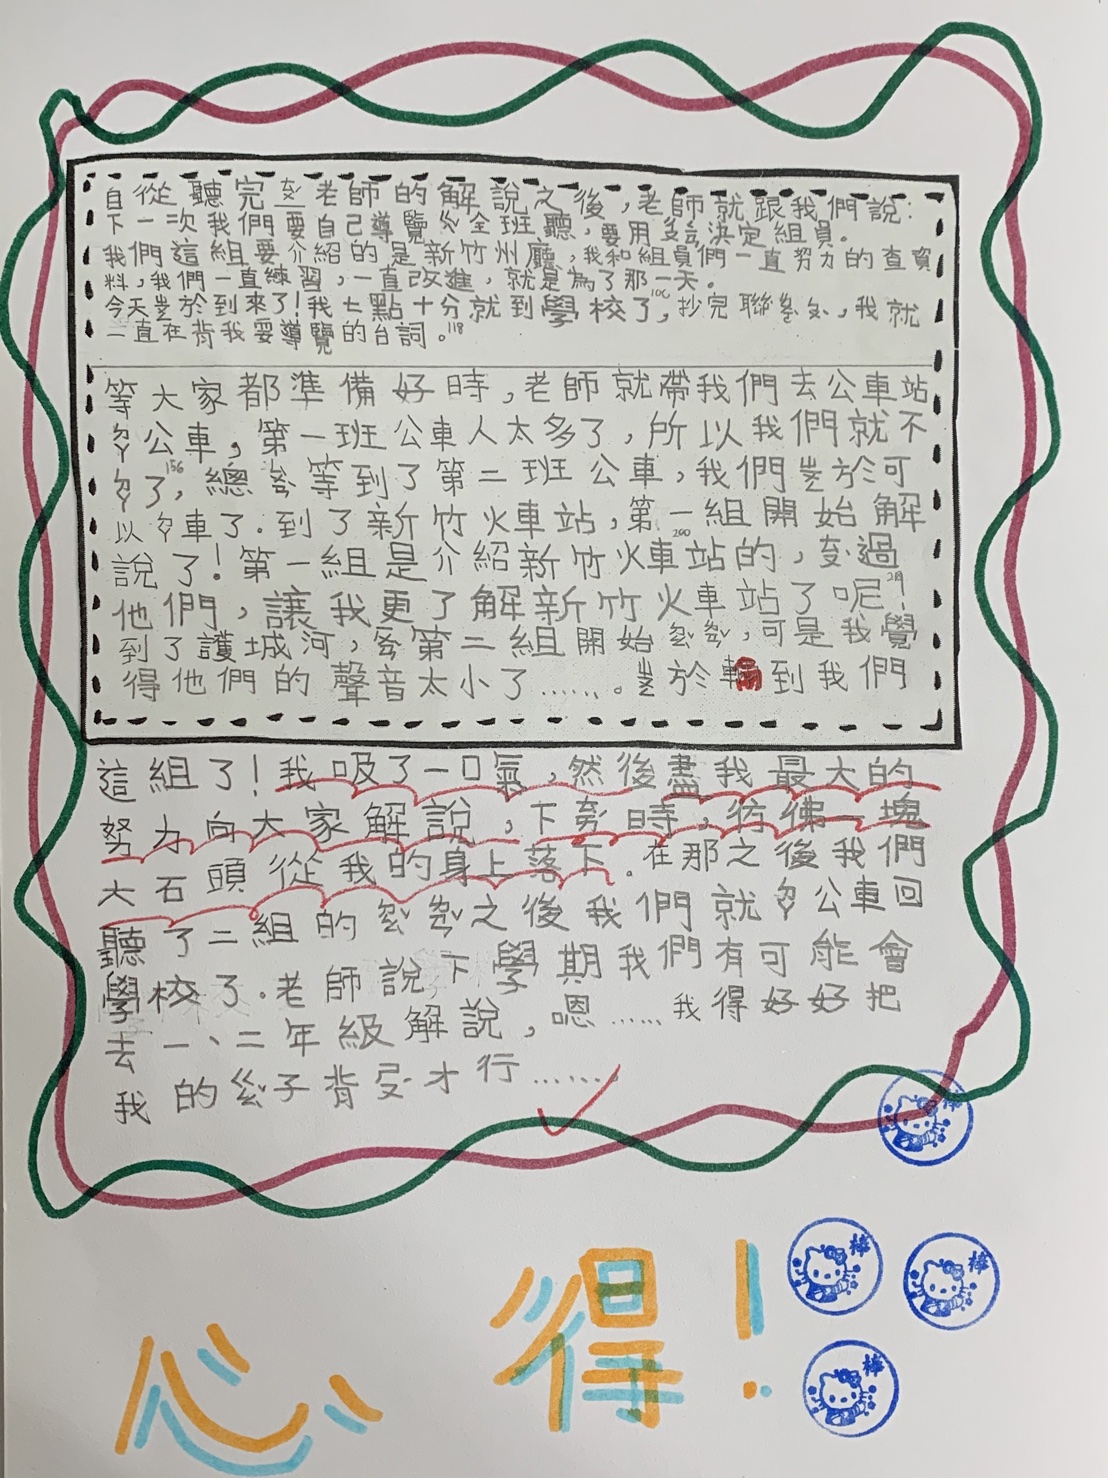 自從聽完老師的解說之後,老師就跟我們說:
下一次我們要自己導覽ㄍㄟˇ全班聽,要用決定組員。
我們這組要介紹的是新竹州廳,我和組員們一直努力的查資
料,我們一直練習,一直改進,就是為了那一天。
今天ㄓㄨㄥ於到來了!我七點十分就到學校了,106抄完聯,我就
一直在背我要導覽的台詞。118
等大家都準備好時,老師就帶我們去公車站
ㄉㄚ公車,第一班公車人太多了,所以我們就不
ㄉㄚ了,156總ㄙㄨㄢˋ等到了第二班公車,我們ㄓㄨㄥ於可
以ㄉㄚ車了.到了新竹火車站,第一組開始解
說了!第一組是介紹新竹火車站的,200過
他們,讓我更了解新竹火車站了呢!
到了護城河,第二組開始,可是我覺
得他們的聲音太小了……。ㄓㄨㄥ於輪到我們
這組了!我吸了一口氣,然後盡我最大的
努力向大家解說,下ㄊㄞˊ時,彷彿一塊
大石頭從我的身上落下.在那之後我們
聽了二組的之後我們就ㄉㄚ公車回
學校了.老師說下學期我們有可能會
去一、二年級解說,嗯……我得好好把
我的ㄍㄠˇ子背才行……。
心得!
棒
棒
棒
棒